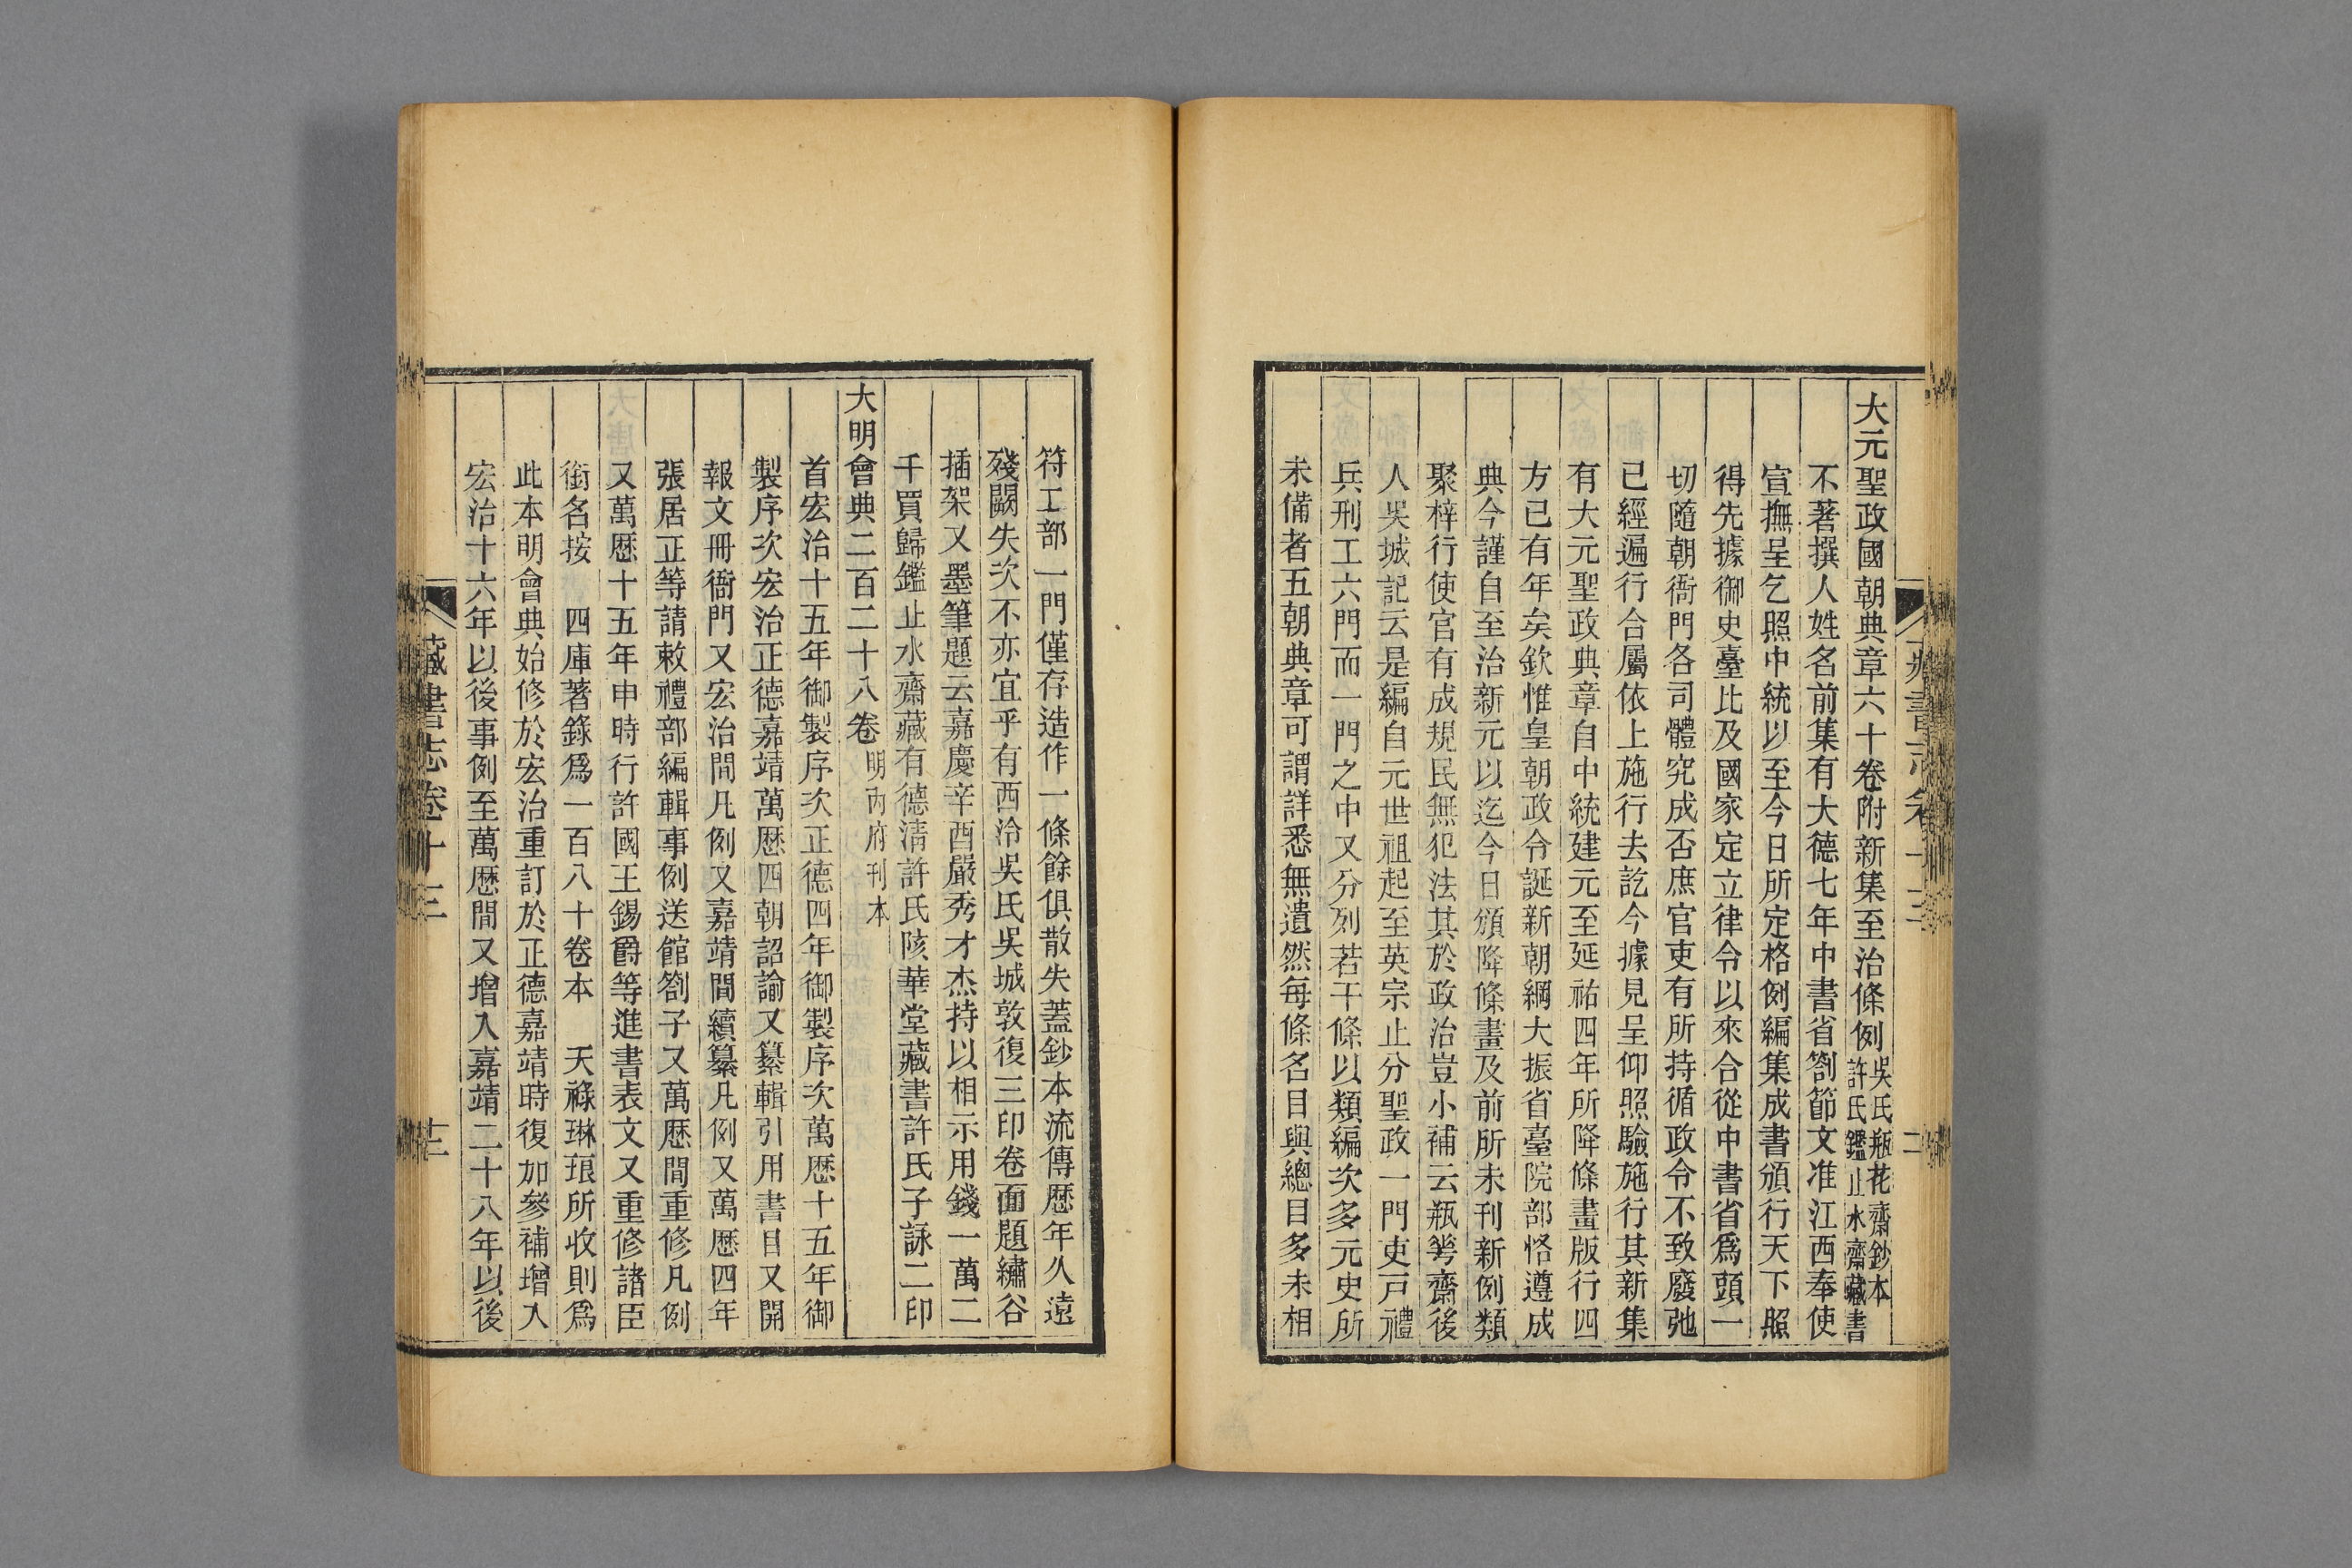 大元聖政國朝典章六十卷附新集至治條例吳氏瓶花齋鈔本許氏鑑止水齋藏書
不著撰人姓名前集有大德七年中書省劄節文准江西奉使
宣撫呈乞照中統以至今日所定格例編集成書頒行天下照
得先據御史臺比及國家定立律令以來合從中書省爲頭一
切隨朝衙門各司體究成否庶官吏有所持循政令不致廢弛
已經遍行合屬依上施行去訖今據見呈仰照驗施行其新集
有大元聖政典章自中統建元至延祐四年所降條畫版行四
方已有年矣欽惟皇朝政令誕新朝綱大振省臺院部恪遵成
典今謹自至治新元以迄今日頒降條畫及前所未刊新例類
聚梓行使官有成規民無犯法其於政治豈小補云瓶笒齋後
人吳城記云是編自元世祖起至英宗止分聖政一門吏戸禮
兵刑工六門而一門之中又分列若干條以類編次多元史所
未備者五朝典章可謂詳悉無遺然每條名目與總目多未相
符工部一門僅存造作一條餘俱散失蓋鈔本流傳歷年久遠
殘闕失次不亦宜乎有西泠吳氏吳城敦復三印卷面題繡谷
插架又墨筆題云嘉慶辛酉嚴秀才杰持以相示用錢一萬二
千買歸鑑止水齋藏有德清許氏陔華堂藏書許氏子詠二印
大明會典二百二十八卷明内府刊本
首宏治十五年御製序次正德四年御製序次萬歷十五年御
製序次宏治正德嘉靖萬歷四朝詔諭又纂輯引用書目又開
報文冊衙門又宏治間凡例又嘉靖間續纂凡例又萬歷四年
張居正等請敕禮部編輯事例送館劄子又萬歷間重修凡例
又萬歷十五年申時行許國王錫爵等進書表文又重修諸臣
銜名按　四庫著錄爲一百八十卷本　天祿琳琅所收則爲
此本明會典始修於宏治重訂於正德嘉靖時復加參補增入
宏治十六年以後事例至萬歷間又增入嘉靖二十八年以後
藏書志卷十三